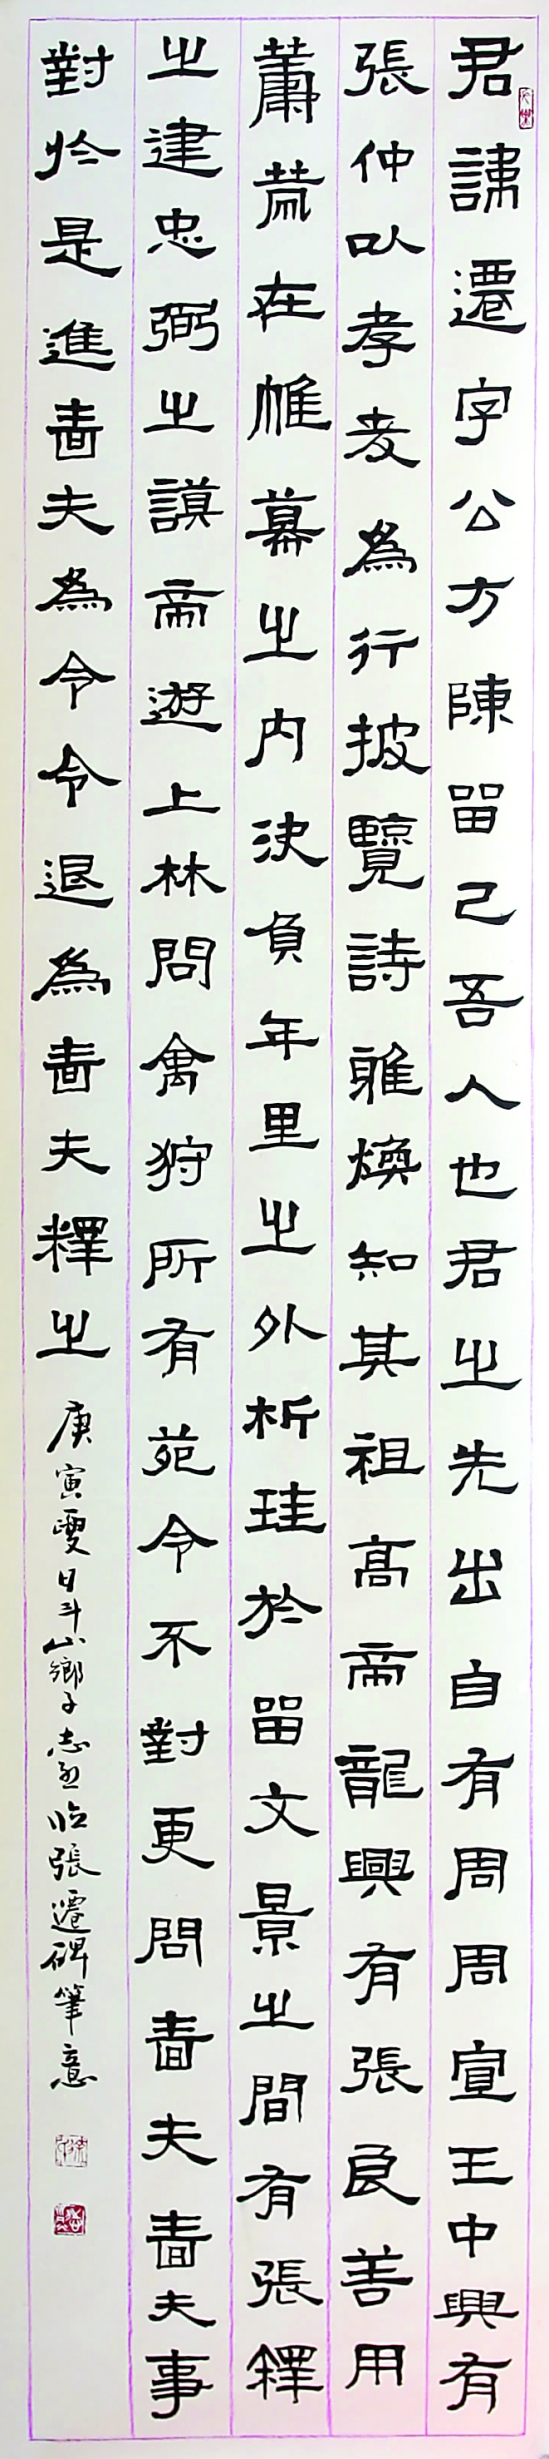 君諱遷字公方陳留己吾人也君之先出自有周周宣王中興有
張仲以孝友為行披覽詩雅煥知其祖高帝龍興有張良善用
蕭策在帷幕之内決負年里之外析珪於留文景之間有張釋
之建忠弼之謨帝遊上林問禽狩所有苑令不對更問嗇夫嗇夫事
對於是進嗇夫為令令退為嗇夫釋之
庚寅夏日斗山鄉子志臨張遷碑筆意